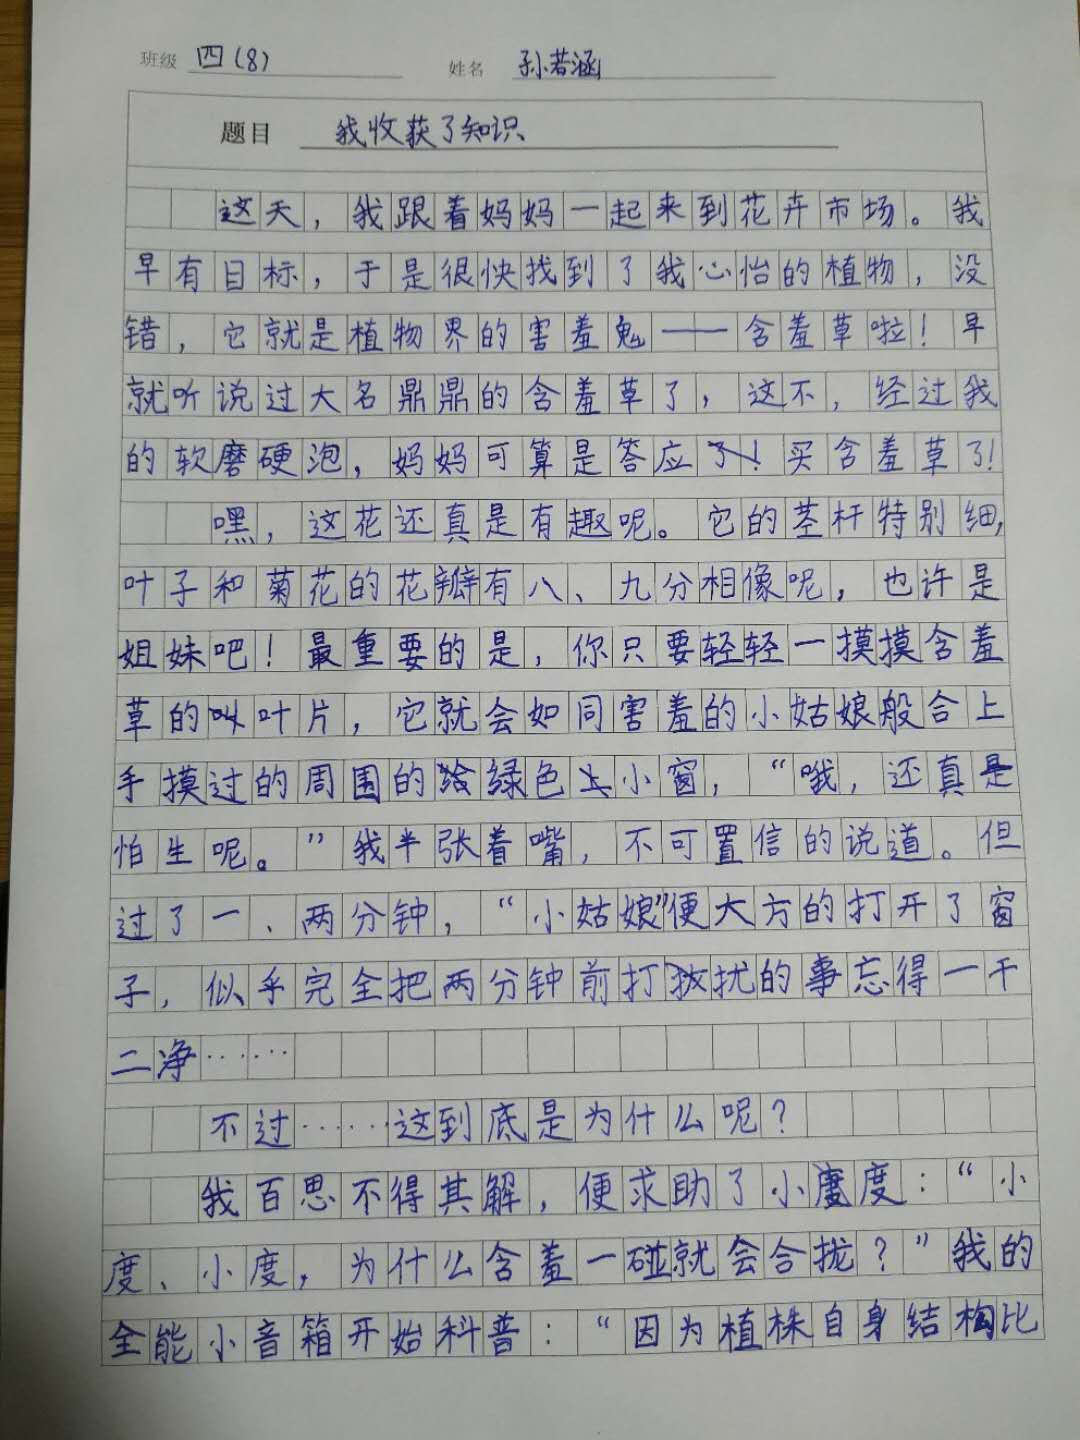 班级 四(8) 姓名 孙若涵
题目 我收获了知识
这天，我跟着妈妈一起来到花卉市场。我
早有目标，于是很快找到了我心怡的植物，没
错，它就是植物界的害羞鬼——含羞草啦！早
就听说过大名鼎鼎的含羞草了，这不，经过我
的软磨硬泡，妈妈可算是答应买含羞草了！
嘿，这花还真是有趣呢。它的茎杆特别细，
叶子和菊花的花瓣有八、九分相像呢，也许是
姐妹吧！最重要的是，你只要轻轻一摸摸含羞
草的叫叶片，它就会如同害羞的小姑娘般合上
手摸过的周围的绿色小窗，“哦，还真是
怕生呢。”我半张着嘴，不可置信的说道。但
过了一、两分钟，“小姑娘”便大方的打开了窗
子，似乎完全把两分钟前打扰的事忘得一干
二净……
不过……这到底是为什么呢？
我百思不得其解，便求助了小度：“小
度、小度，为什么含羞一碰就会合拢？”我的
全能小音箱开始科普：“因为植株自身结构比